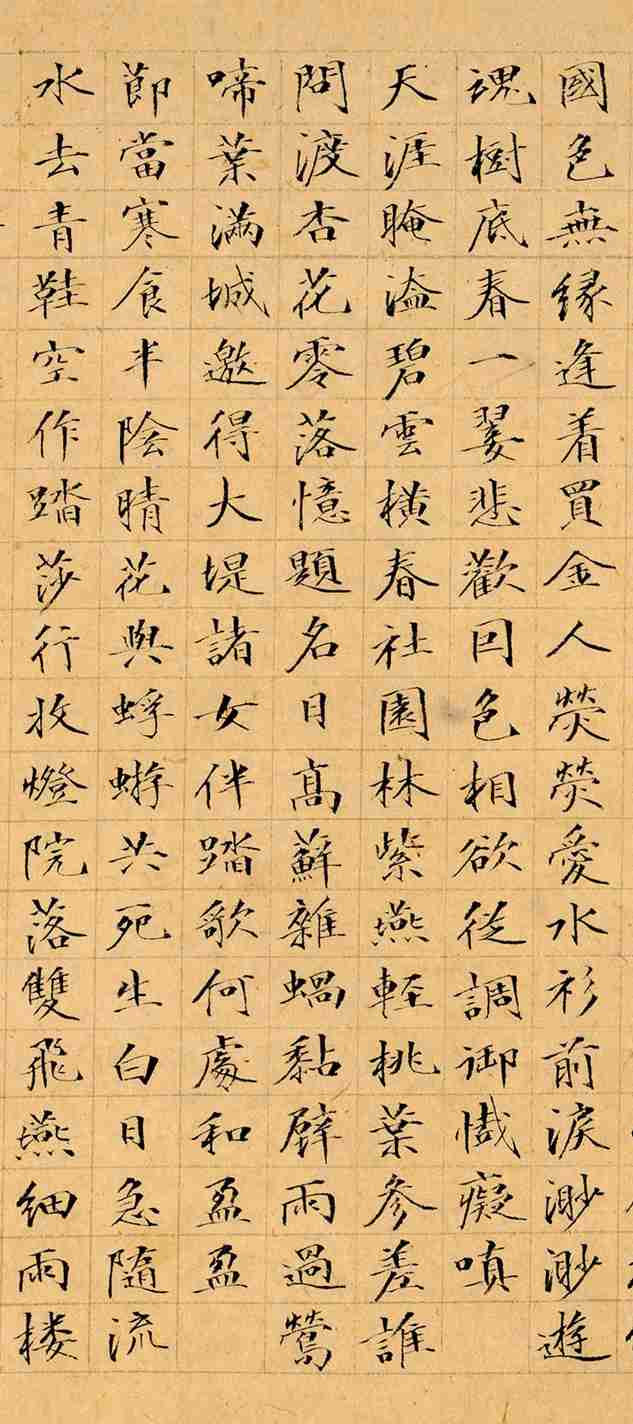 國色無緣逢着買金人熒熒愛水衫前淚渺渺遊
魂樹底春一霎悲歡回色相欲從調御懺癡嗔
天涯腌溘碧雲橫春社園林紫燕輕桃葉參差誰
問渡杏花零落憶題名日高蘇雜蝸黏壁雨過鶯
啼葉滿城邀得大堤諸女伴踏歌何處和盈盈
節當寒食半陰晴花與蜉蝣共死生白日急隨流
水去青鞋空作踏莎行收燈院落雙飛燕細雨楼